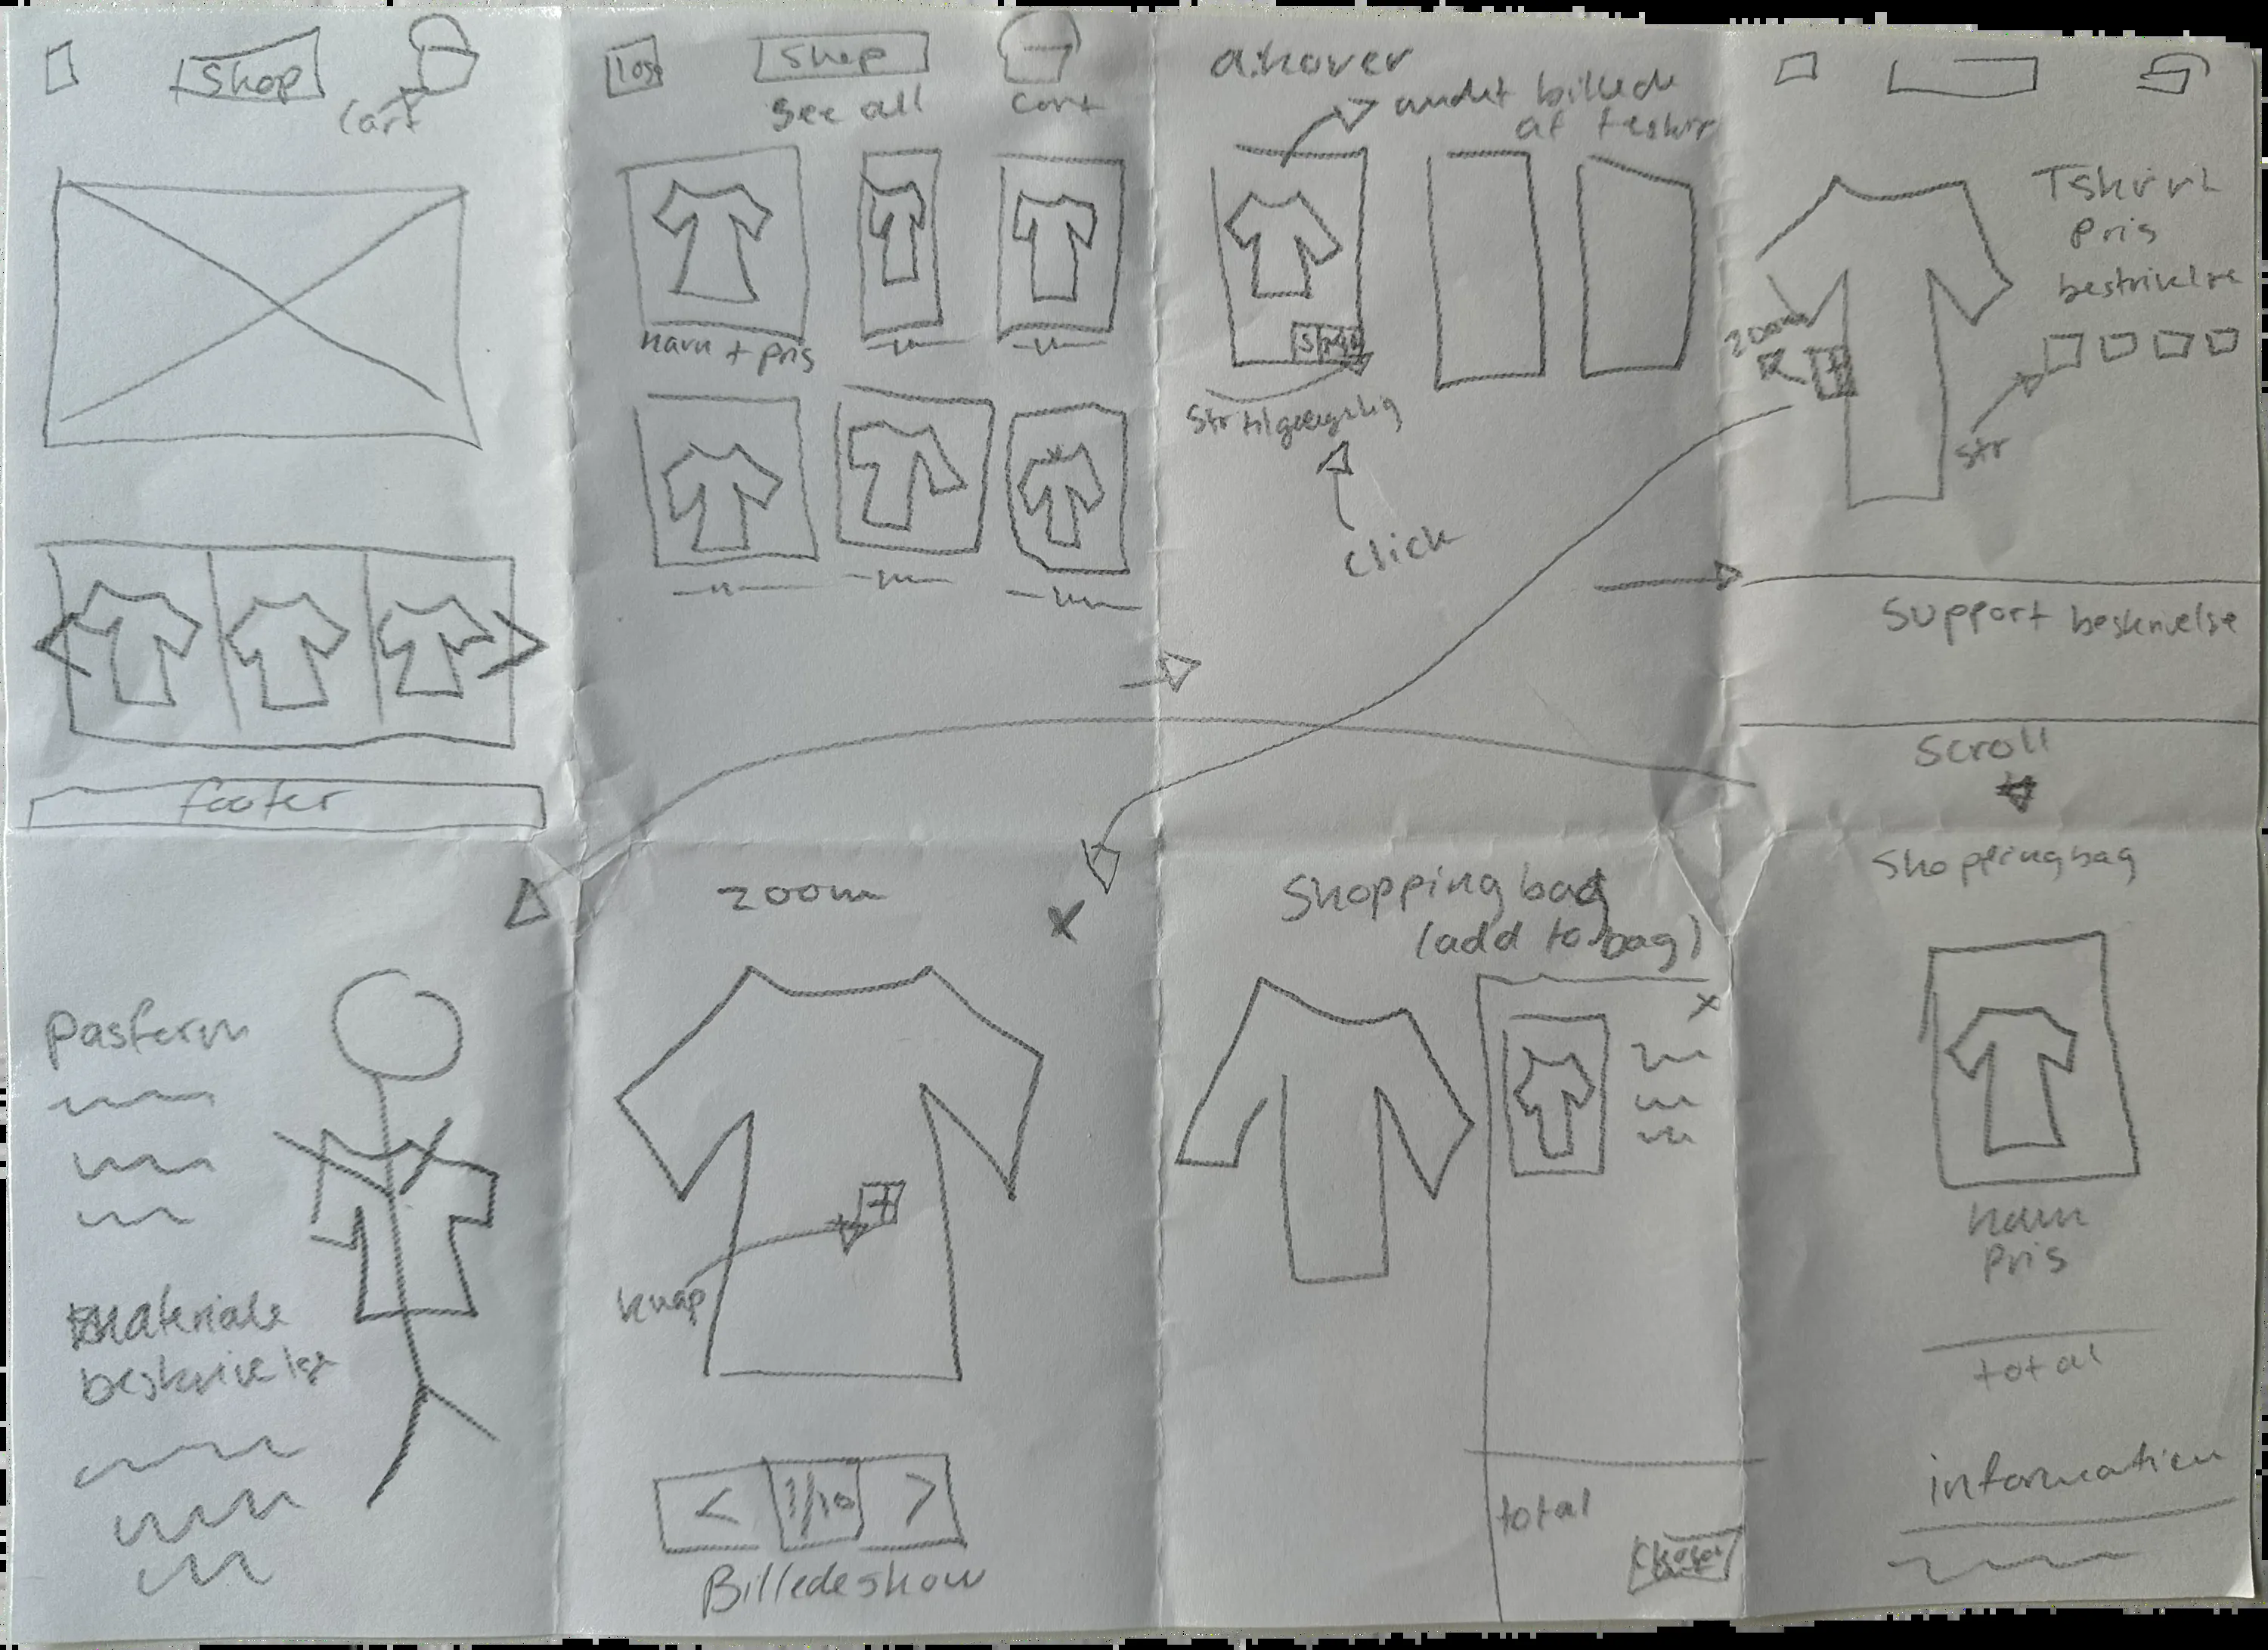 Shop
Cart
Logo
Shop
See all
Cart
Navn + pris
a.hover
andet billede
af teshirt
Str tilgængelig
Click
Tshirt
Pris
beskrivelse
zoom
+
Str
Support beskrivelse
Scroll
footer
Pasform
Materiale
beskrivelse
zoom
X
+
knap
< 1/10 >
Billedeshow
Shopping bag
(add to bag)
x
total
Shoppingbag
Navn
Pris
total
information